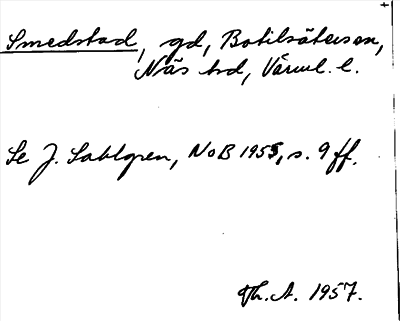 Smedstad, gd, Botilsäter sn,
Näs hd, Värml. l.
Se J. Sahlgren, NoB 1955, s. 9 ff.
Th. A. 1957.